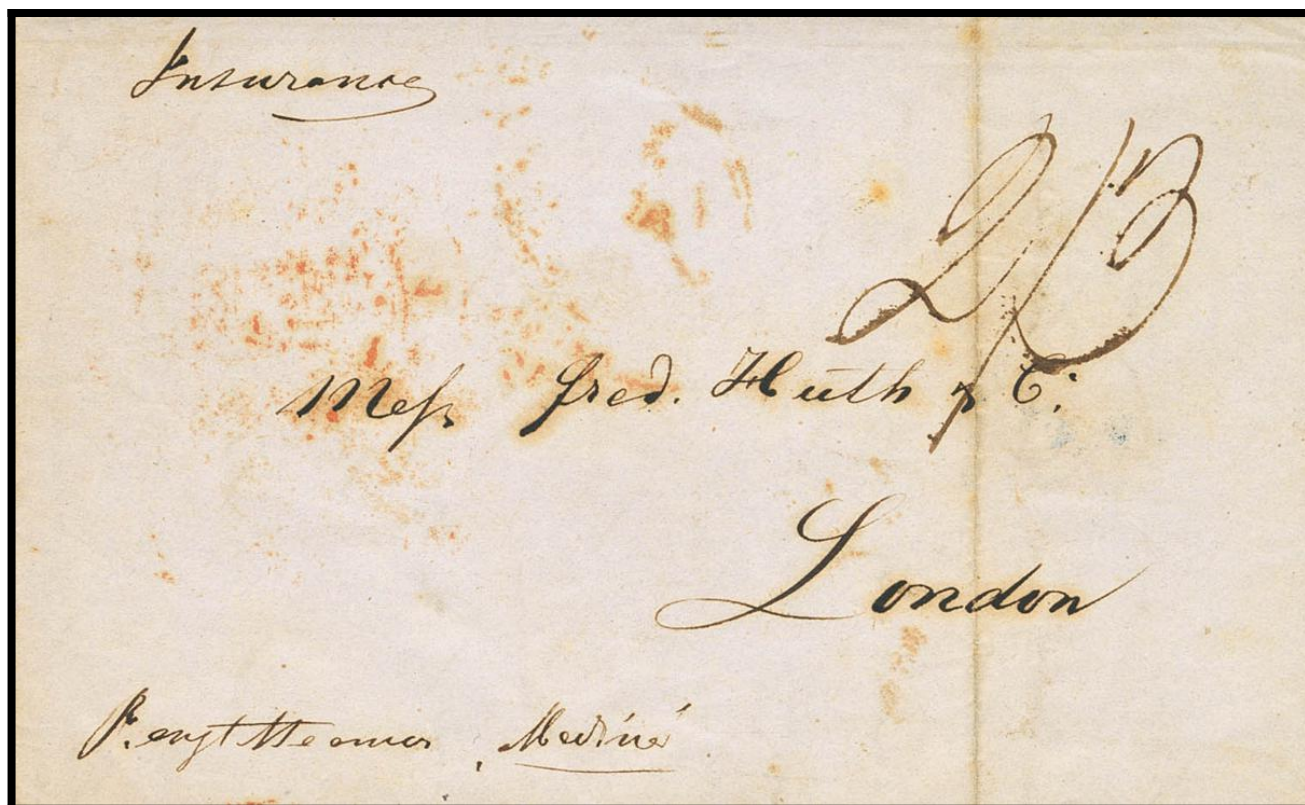 Insurance
2/3
Mess Fred. Huth & Co.
London
P. engl Steamer "Medina"